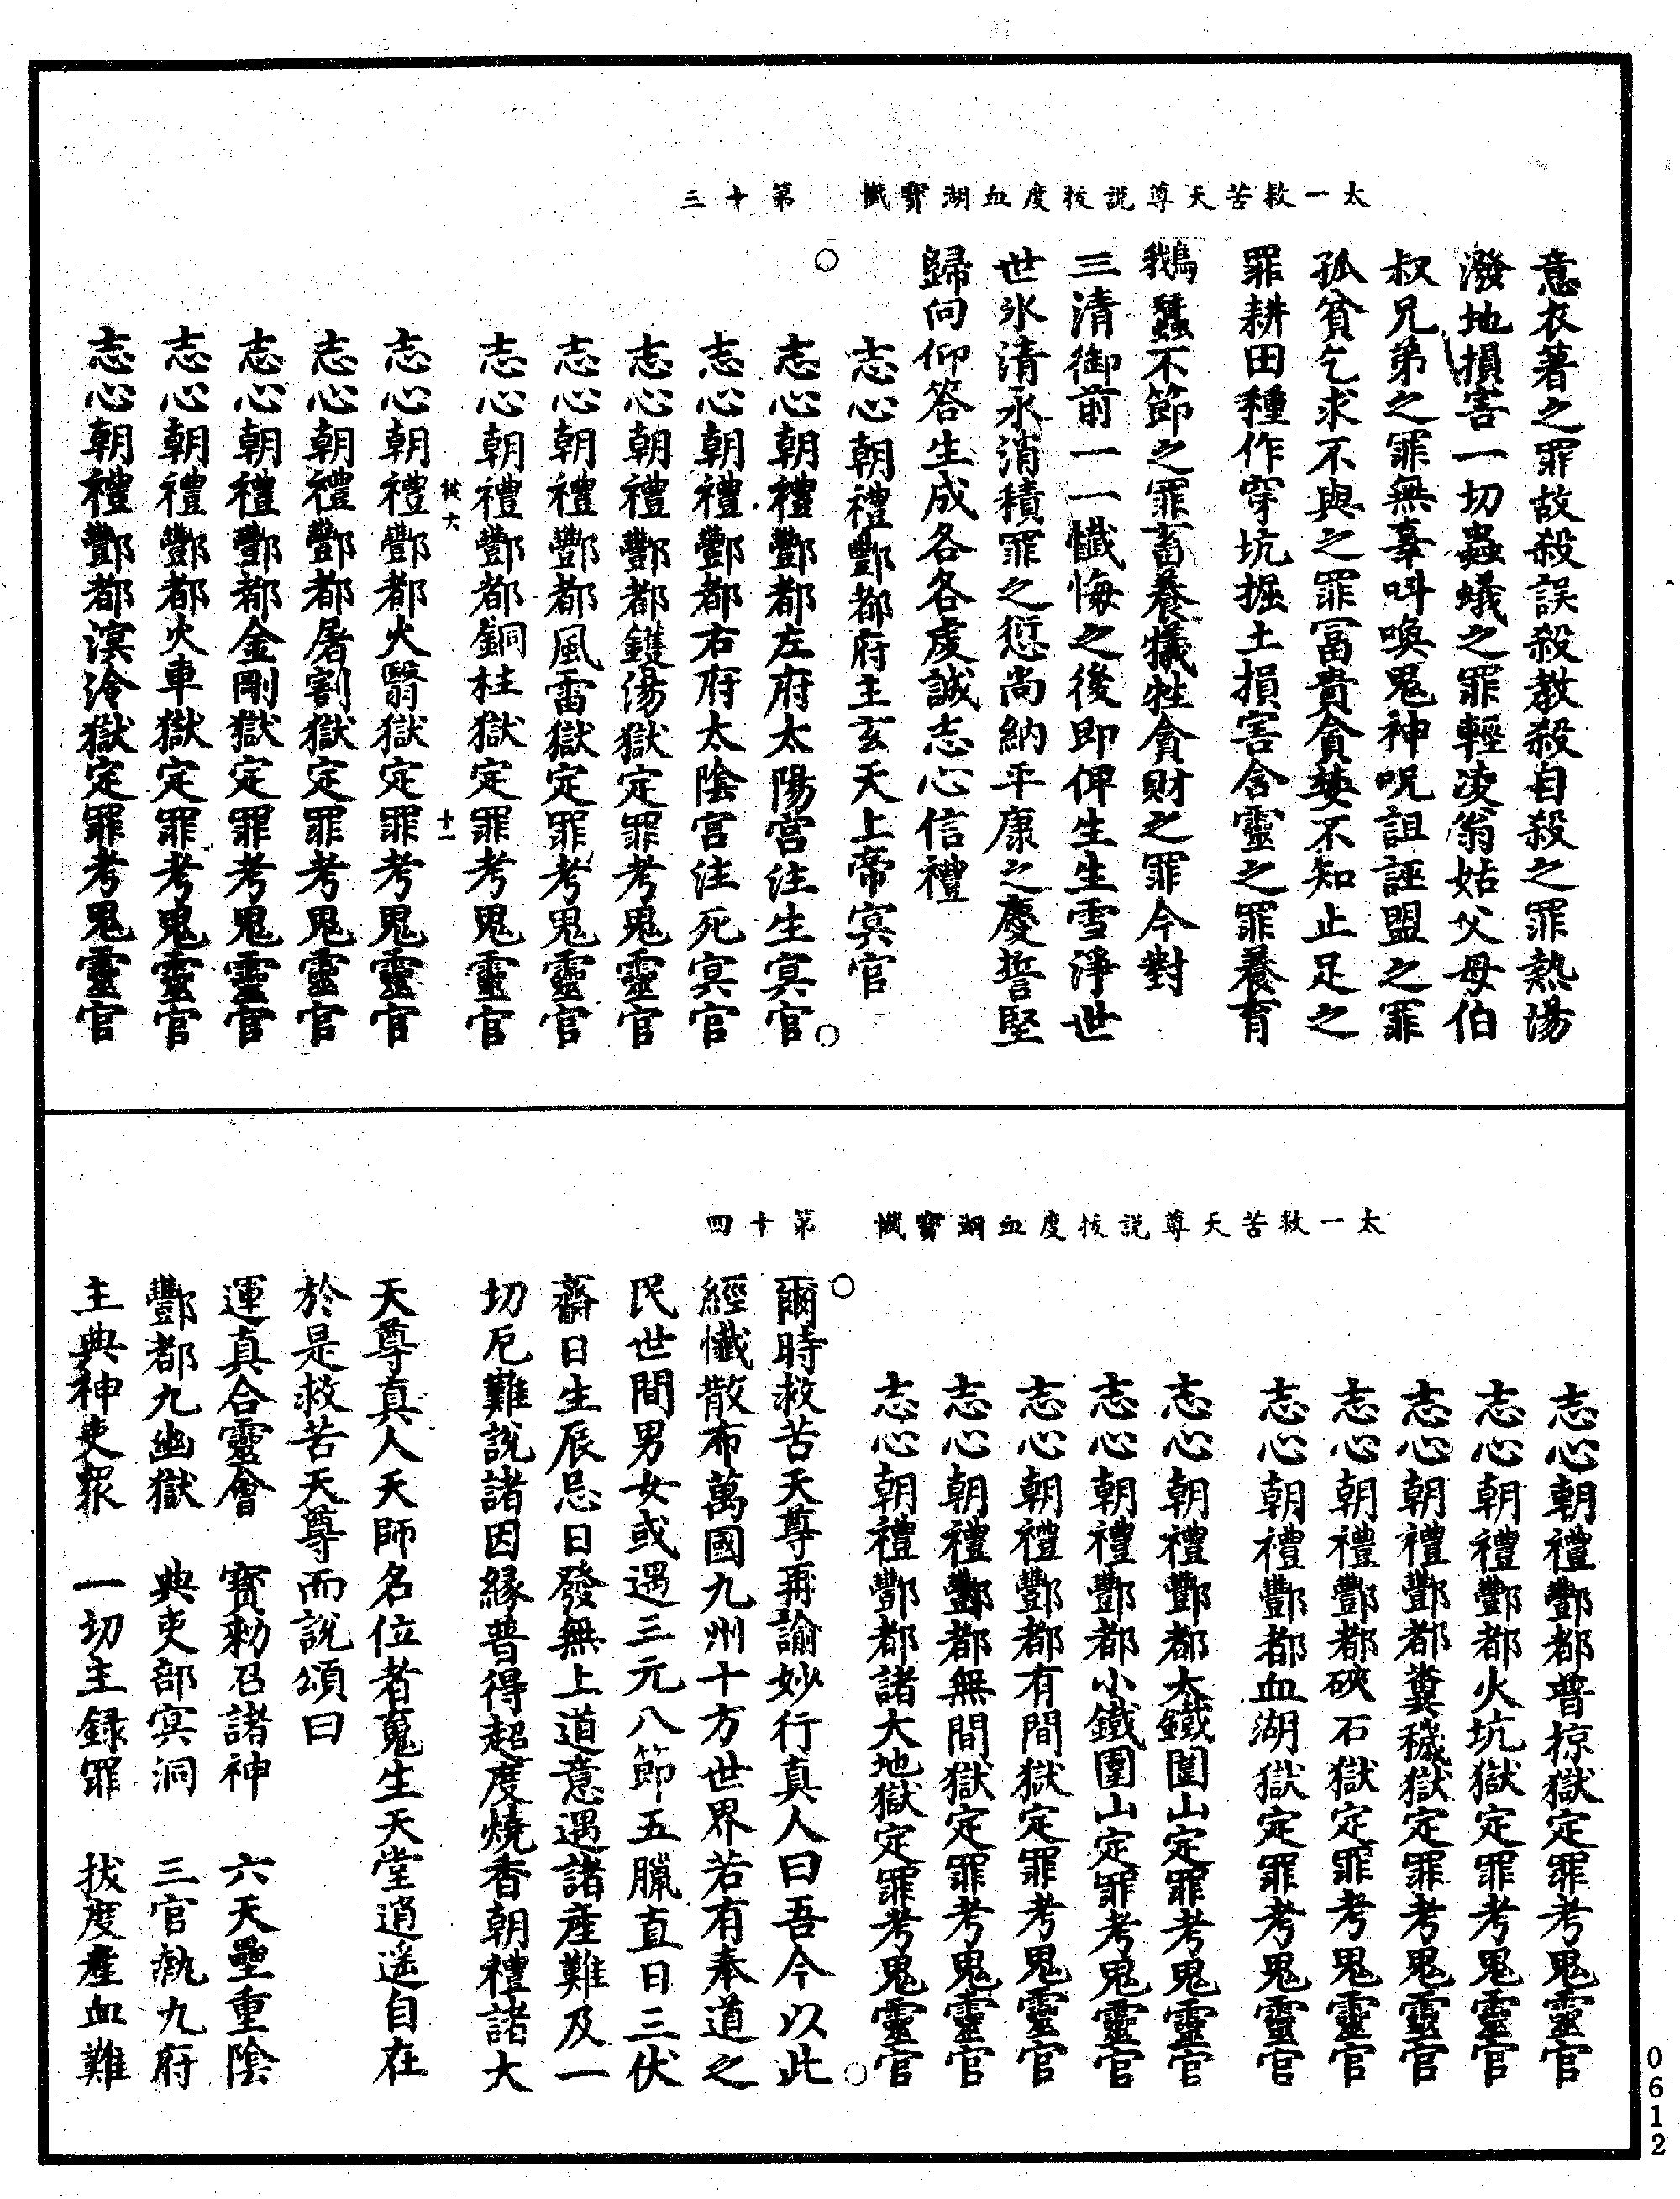 太一救苦天尊說拔度血湖寶懺　第十三
意衣著之罪故殺誤殺教殺自殺之罪熱湯
潑地損害一切蟲蟻之罪輕凌翁姑父母伯
叔兄弟之罪無辜呌喚鬼神呪詛誣盟之罪
孤貧乞求不與之罪冨貴貪婪不知止足之
罪耕田種作穿坑掘土損害含靈之罪養育
鵝蠶不節之罪畜養犧牲貪財之罪今對
三清御前一一懺悔之後即俾生生雪淨世
世氷清永消積罪之愆尚納平康之慶誓堅
歸向仰答生成各各虔誠志心信禮
志心朝禮酆都府主玄天上帝冥官
志心朝禮酆都左府太陽宫注生冥官
志心朝禮酆都右府太陰宫注死冥官
志心朝禮酆都鑊湯獄定罪考鬼靈官
志心朝禮酆都風雷獄定罪考鬼靈官
志心朝禮酆都銅柱獄定罪考鬼靈官
十一
志心朝禮酆都火翳獄定罪考鬼靈官
志心朝禮酆都屠割獄定罪考鬼靈官
志心朝禮酆都金剛獄定罪考鬼靈官
志心朝禮酆都火車獄定罪考鬼靈官
志心朝禮酆都溟泠獄定罪考鬼靈官
太一救苦天尊說拔度血湖寶懺　第十四
志心朝禮酆都普掠獄定罪考鬼靈官
志心朝禮酆都火坑獄定罪考鬼靈官
志心朝禮酆都糞穢獄定罪考鬼靈官
志心朝禮酆都硤石獄定罪考鬼靈官
志心朝禮酆都血湖獄定罪考鬼靈官
志心朝禮酆都大鐵圍山定罪考鬼靈官
志心朝禮酆都小鐵圍山定罪考鬼靈官
志心朝禮酆都有間獄定罪考鬼靈官
志心朝禮酆都無間獄定罪考鬼靈官
志心朝禮酆都諸大地獄定罪考鬼靈官
爾時救苦天尊再諭妙行真人曰吾今以此
經懺散布萬國九州十方世界若有奉道之
民世間男女或遇三元八節五臘直日三伏
齋日生辰忌日發無上道意遇諸產難及一
切厄難說諸因緣普得超度燒香朝禮諸大
天尊真人天師名位者蒐生天堂逍遥自在
於是救苦天尊而說頌曰
運真合靈會　寳勑召諸神　六天壘重陰
酆都九幽獄　典吏部冥洞　三官執九府
主典神吏衆　一切主録罪　拔度產血難
0612